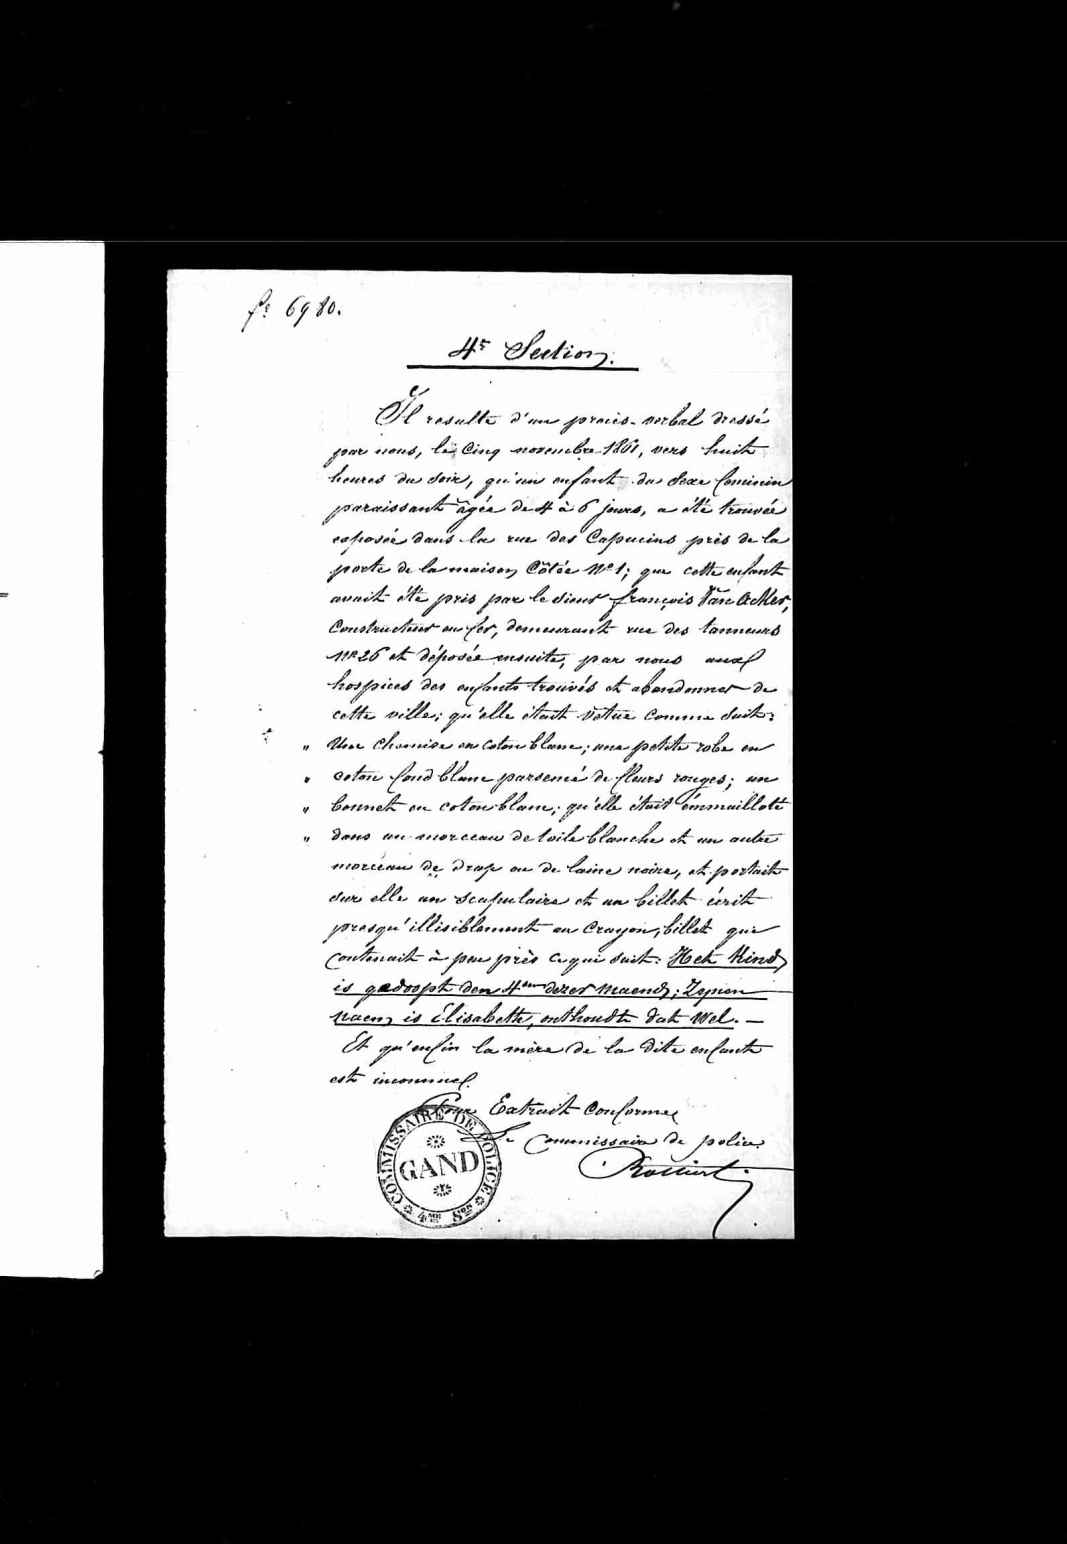 fº 6980.
4e Section.
Il resulte d'un procès-verbal dressé
par nous, le cinq novembre 1861, vers huit
heures du soir, qu'un enfant du sexe feminin
paraissant âgée de 4 à 6 jours, a été trouvée
exposée dans la rue des Capucins près de la
porte de la maison Côtée Nº 1; que cette enfant
avait été pris par le sieur françois Van Acker,
Constructeur en fer, demeurant rue des tanneurs
Nº 26 et déposée ensuite, par nous aux
hospices des enfants trouvés et abandonnés de
cette ville; qu'elle était vêtue comme suit:
" Une chemise en coton blanc; une petite robe en
" coton fond blanc parsemé de fleurs rouges; un
" bonnet en coton blanc; qu'elle était emmaillotté
" dans un morceau de toile blanche et un autre
morceau de drap ou de laine noire, et portait
sur elle un scapulaire et un billet écrit
presqu'illisiblement au Crayon, billet que
contenait à peu près ce qui suit: Het Kind
is gedoopt den 4en dezer maend; Zynen
naem is Élisabette, onthoudt dat wel. —
Et qu'enfin la mère de la dite enfant
est inconnue.
Pour Extrait Conforme
Le Commissaire de police
COMMISSAIRE DE POLICE
GAND
4me Son